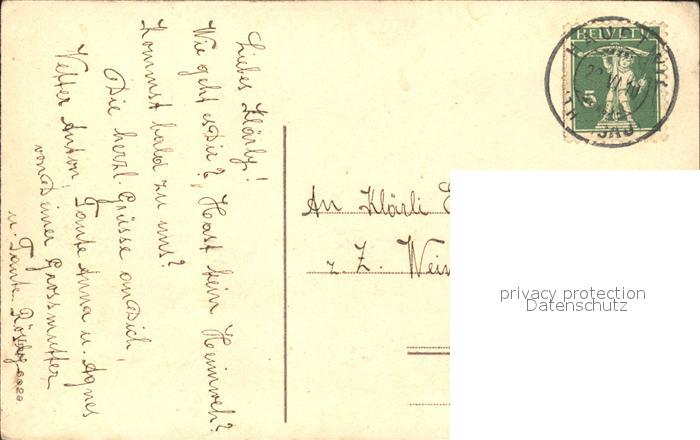 Liebes Klärly!
Wie geht es Dir? Hast kein Heimweh?
Kommst bald zu uns?
Die herzl. Grüsse an Dich,
Vetter Anton! Tante Anna u. Agnes
von Deiner Grossmutter
u. Tante
HELVETIA
5
An Klärli
z. Z.
privacy protection
Datenschutz